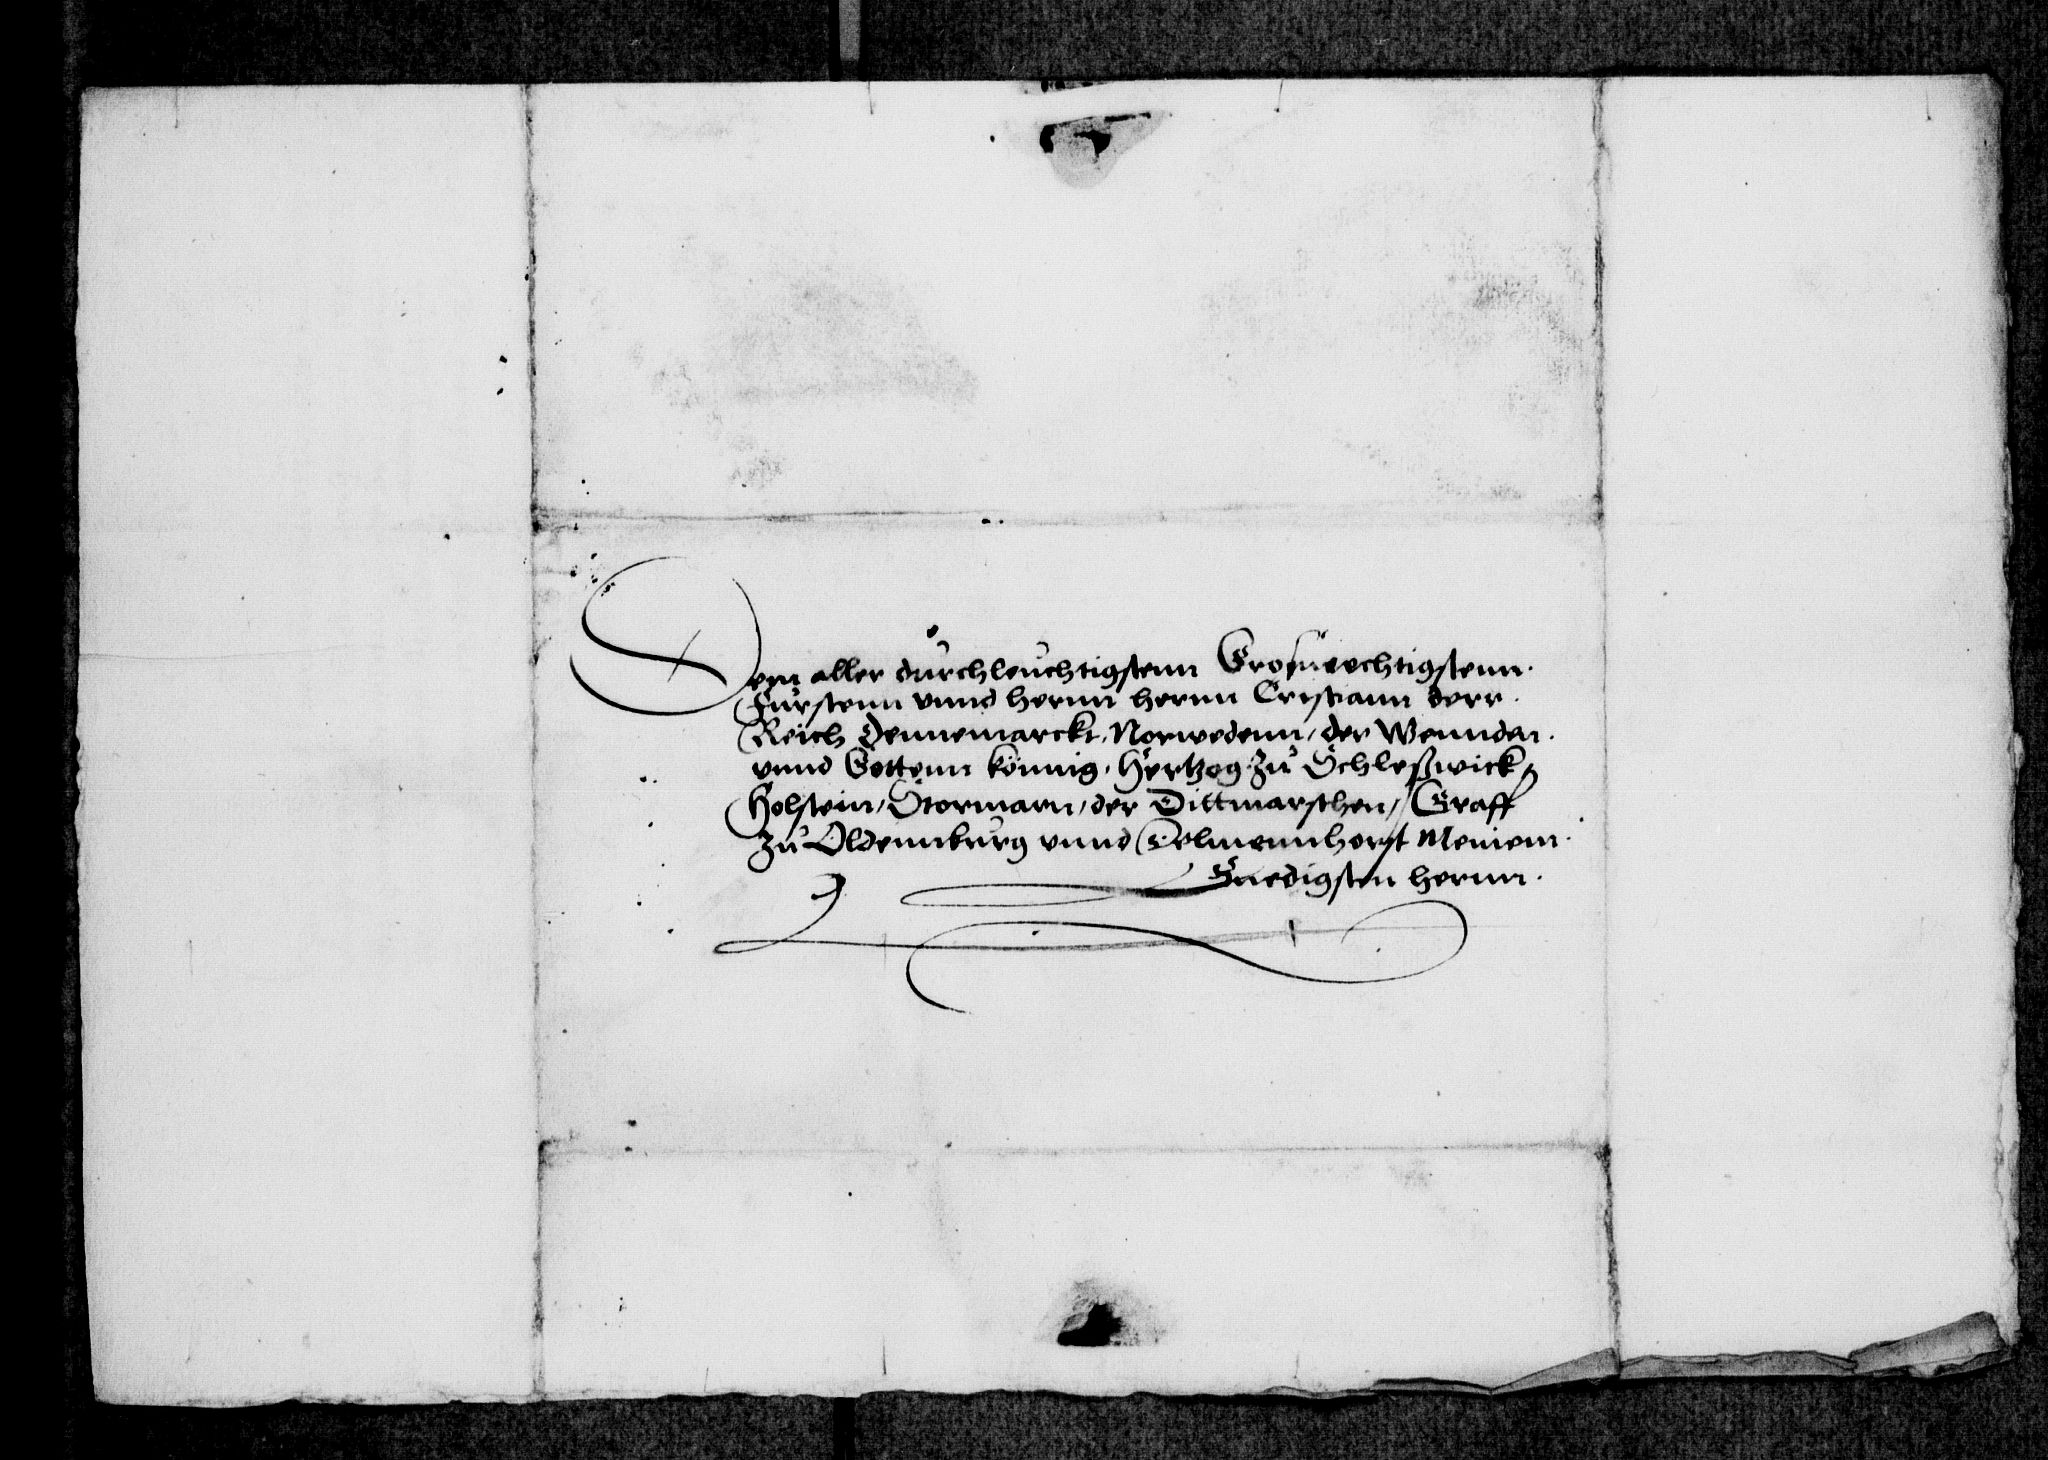 Dem aller durchleuchtigstenn Grosmechtigstenn.
Furstenn vnnd hernn hernn Cristiann derr.
Reich Dennemarckt, Norwedenn, der Wennden.
vnnd Gottenn könnig, Hertzog zu Schleßwick,
Holstein, Stormarn, der Dittmarschen, Graff
Zu Oldennburg vnnd Delmennhorst Meinem.
Gnedigsten hernn.